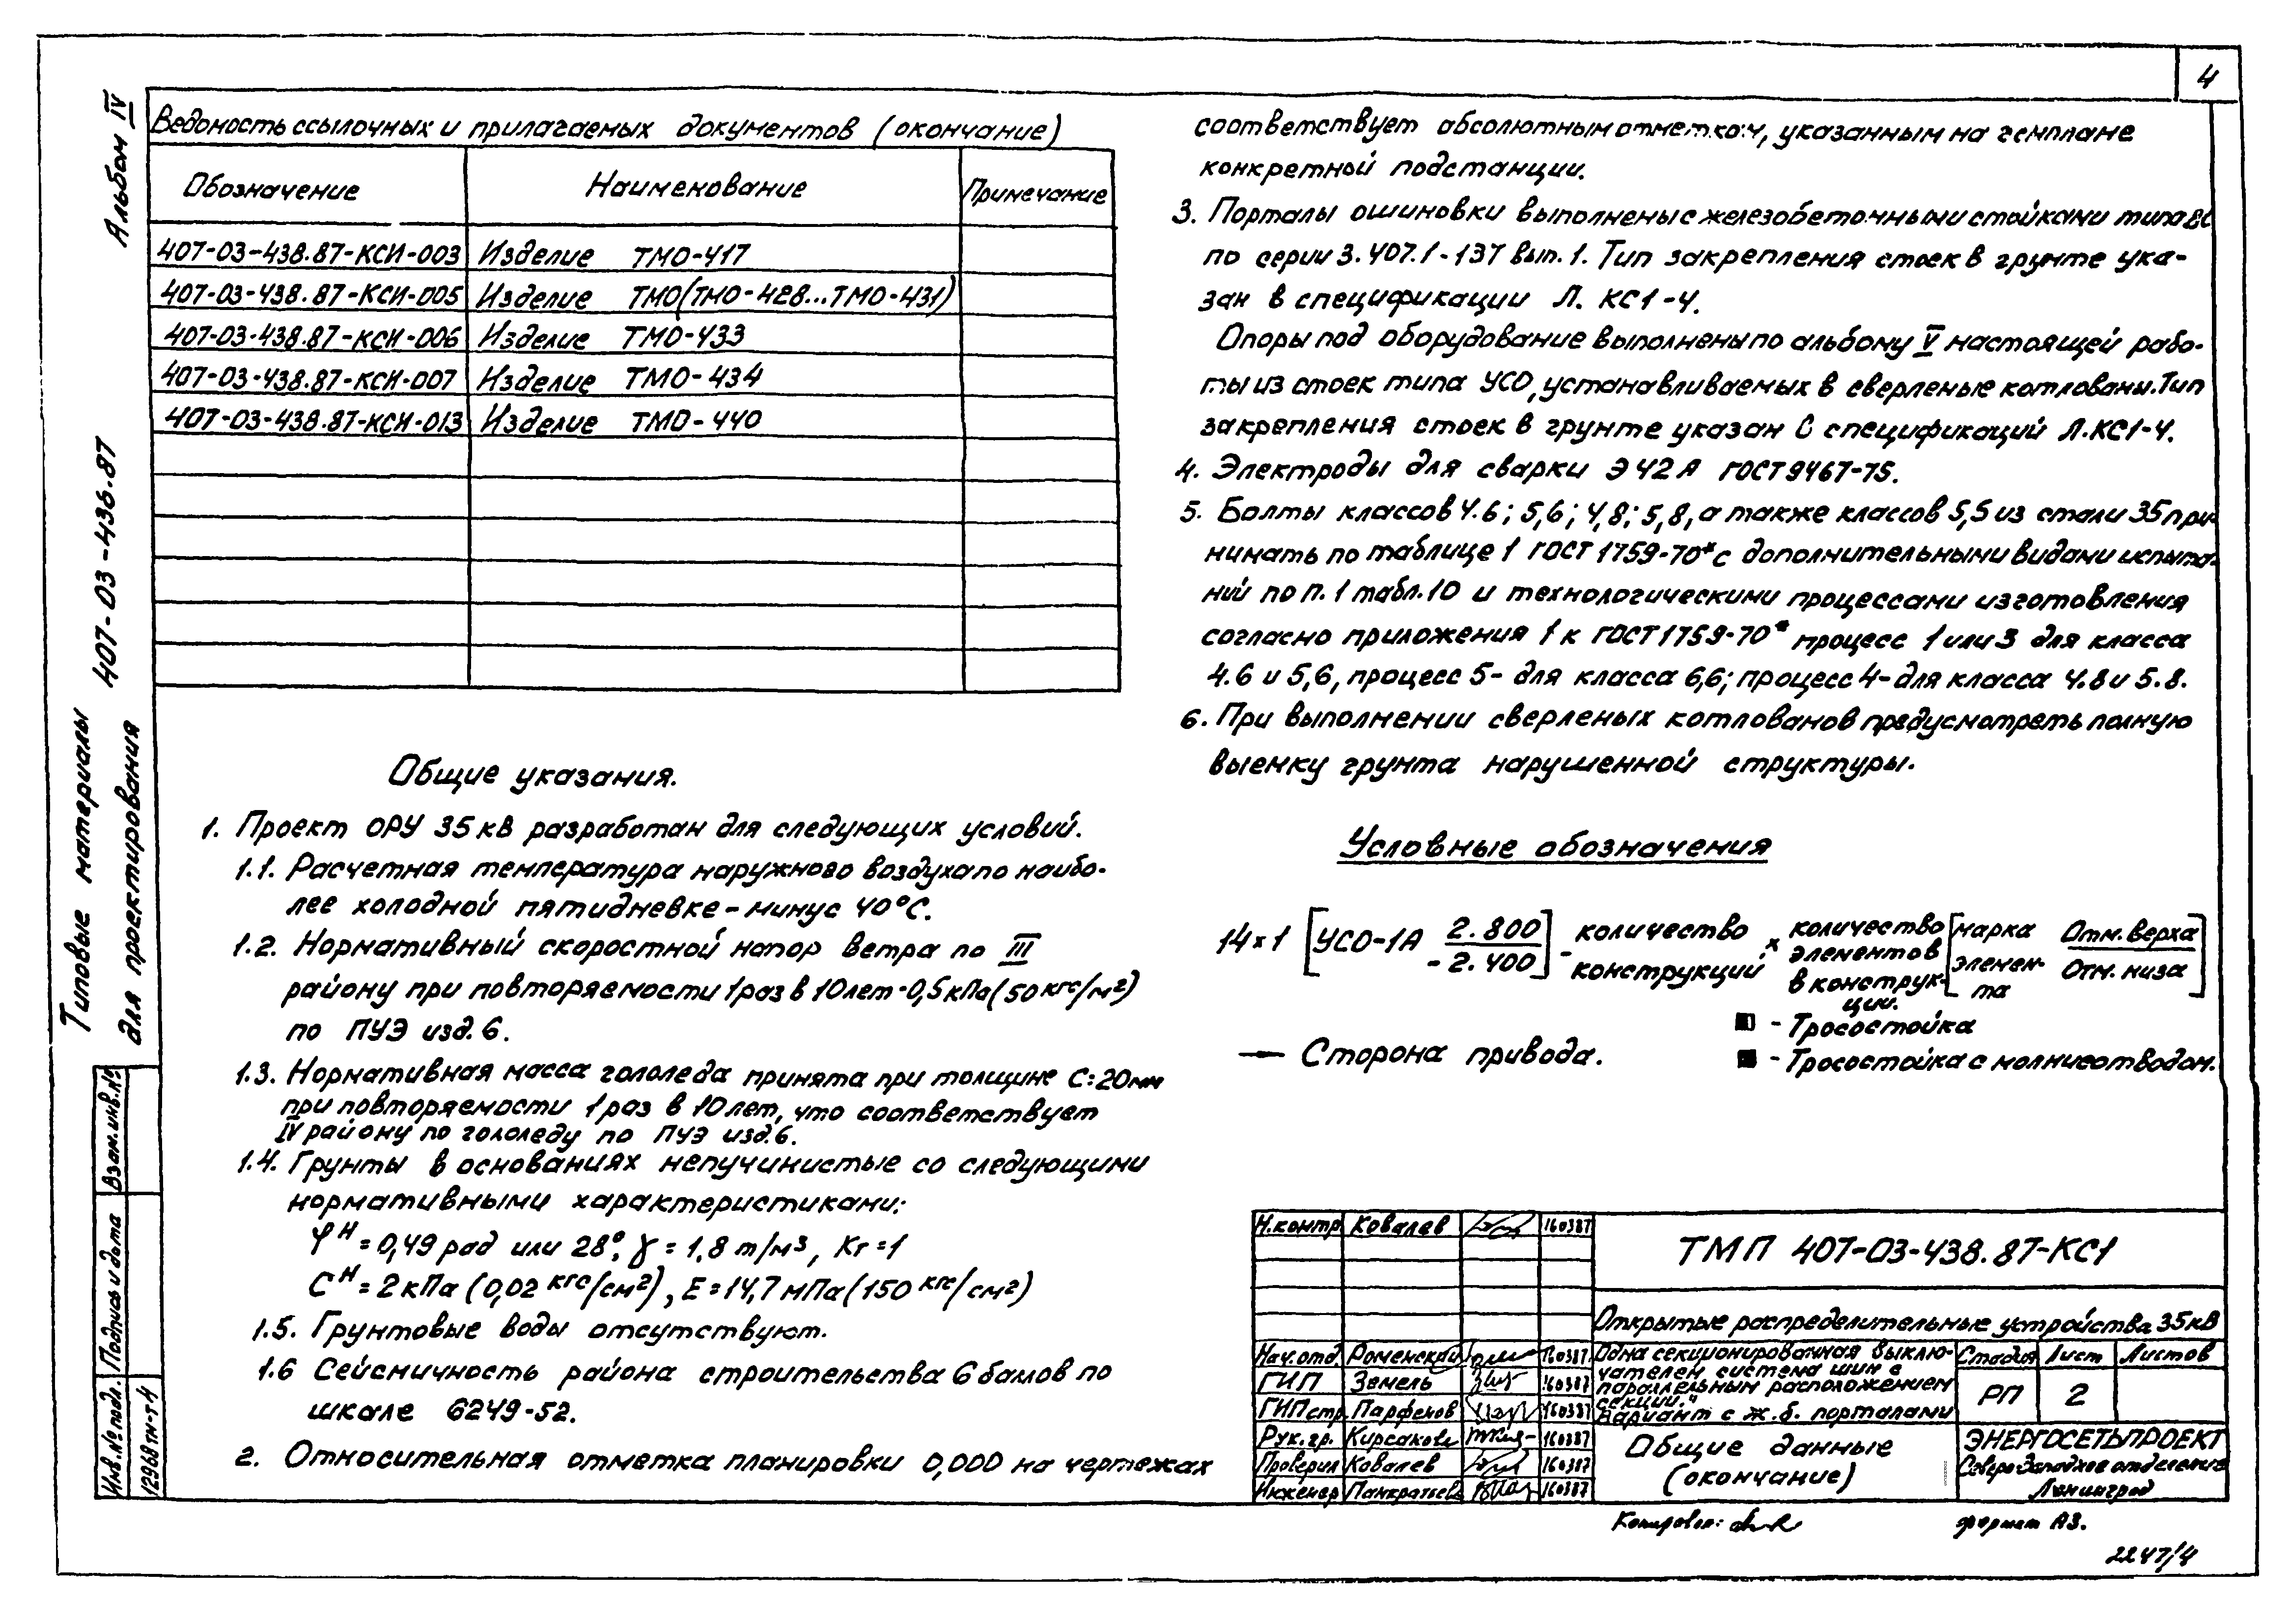 4
Альбом IV
Типовые материалы
для проектирования 407-03-436.87
Ведомость ссылочных и прилагаемых документов (окончание)
Обозначение Наименование Примечание
407-03-438.87-КСИ-003 Изделие ТМО-417
407-03-438.87-КСИ-005 Изделие ТМО(ТМО-428...ТМО-431)
407-03-438.87-КСИ-006 Изделие ТМО-433
407-03-438.87-КСИ-007 Изделие ТМО-434
407-03-438.87-КСИ-013 Изделие ТМО-440
Общие указания.
1. Проект ОРУ 35 кВ разработан для следующих условий.
1.1. Расчетная температура наружного воздуха по наибо-
лее холодной пятидневке - минус 40°С.
1.2. Нормативный скоростной напор ветра по III
району при повторяемости 1 раз в 10 лет - 0,5 кПа (50 кгс/м²)
по ПУЭ изд. 6.
1.3. Нормативная масса гололеда принята при толщине С=20мм
при повторяемости 1 раз в 10 лет, что соответствует
IV району по гололеду по ПУЭ изд.6.
1.4. Грунты в основаниях непучинистые со следующими
нормативными характеристиками:
φᴴ = 0,49 рад или 28°, γ = 1,8 т/м³, Кг = 1
Сᴴ = 2 кПа (0,02 кгс/см²), Е = 14,7 мПа (150 кгс/см²)
1.5. Грунтовые воды отсутствуют.
1.6 Сейсмичность района строительства 6 баллов по
шкале 6249-52.
2. Относительная отметка планировки 0,000 на чертежах
соответствует абсолютным отметкам, указанным на генплане
конкретной подстанции.
3. Порталы ошиновки выполнены с железобетонными стойками типа ВС
по серии 3.407.1-137 вып. 1. Тип закрепления стоек в грунте ука-
зан в спецификации Л. КС1-4.
Опоры под оборудование выполнены по альбому V настоящей рабо-
ты из стоек типа УСО, устанавливаемых в сверленые котлованы. Тип
закрепления стоек в грунте указан С спецификаций Л.КС1-4.
4. Электроды для сварки Э42А ГОСТ 9467-75.
5. Болты классов 4.6; 5,6; 4,8; 5,8, а также классов 5,5 из стали 35 при-
нимать по таблице 1 ГОСТ 1759-70* с дополнительными видами испыта-
ний по п. 1 табл. 10 и технологическими процессами изготовления
согласно приложения 1 к ГОСТ 1759-70* процесс 1 или 3 для класса
4.6 и 5,6, процесс 5- для класса 6,6; процесс 4- для класса 4.8 и 5.8.
6. При выполнении сверленых котлованов предусмотреть полную
выемку грунта нарушенной структуры.
Условные обозначения
14×1 [УСО-1А 2.800 / -2.400] - количество конструкций × количество элементов в конструк-ции. [марка элемен-та Отм. верха / Отм. низа]
Сторона привода.
- Тросостойка
- Тросостойка с молниеотводом.
Взам. инв. №
Подпись и дата
Инв. № подл. 12968тм-т4
Н.контр Ковалев 160387
Нач.отд Роменский 160387
ГИП Земель 160387
ГИП стр Парфенов 160387
Рук. гр. Кирсанова 160387
Проверил Ковалев 160387
Инженер Панкратьева 160387
ТМП 407-03-438.87-КС1
Открытые распределительные устройства 35 кВ
Одна секционированная выклю-
чателем, система шин с
параллельным расположением
секций."
Вариант с ж.б. порталами
Стадия Лист Листов
РП 2
Общие данные
(окончание)
ЭНЕРГОСЕТЬПРОЕКТ
Северо-Западное отделение
Ленинград
Копировал:
формат А3.
2247/4